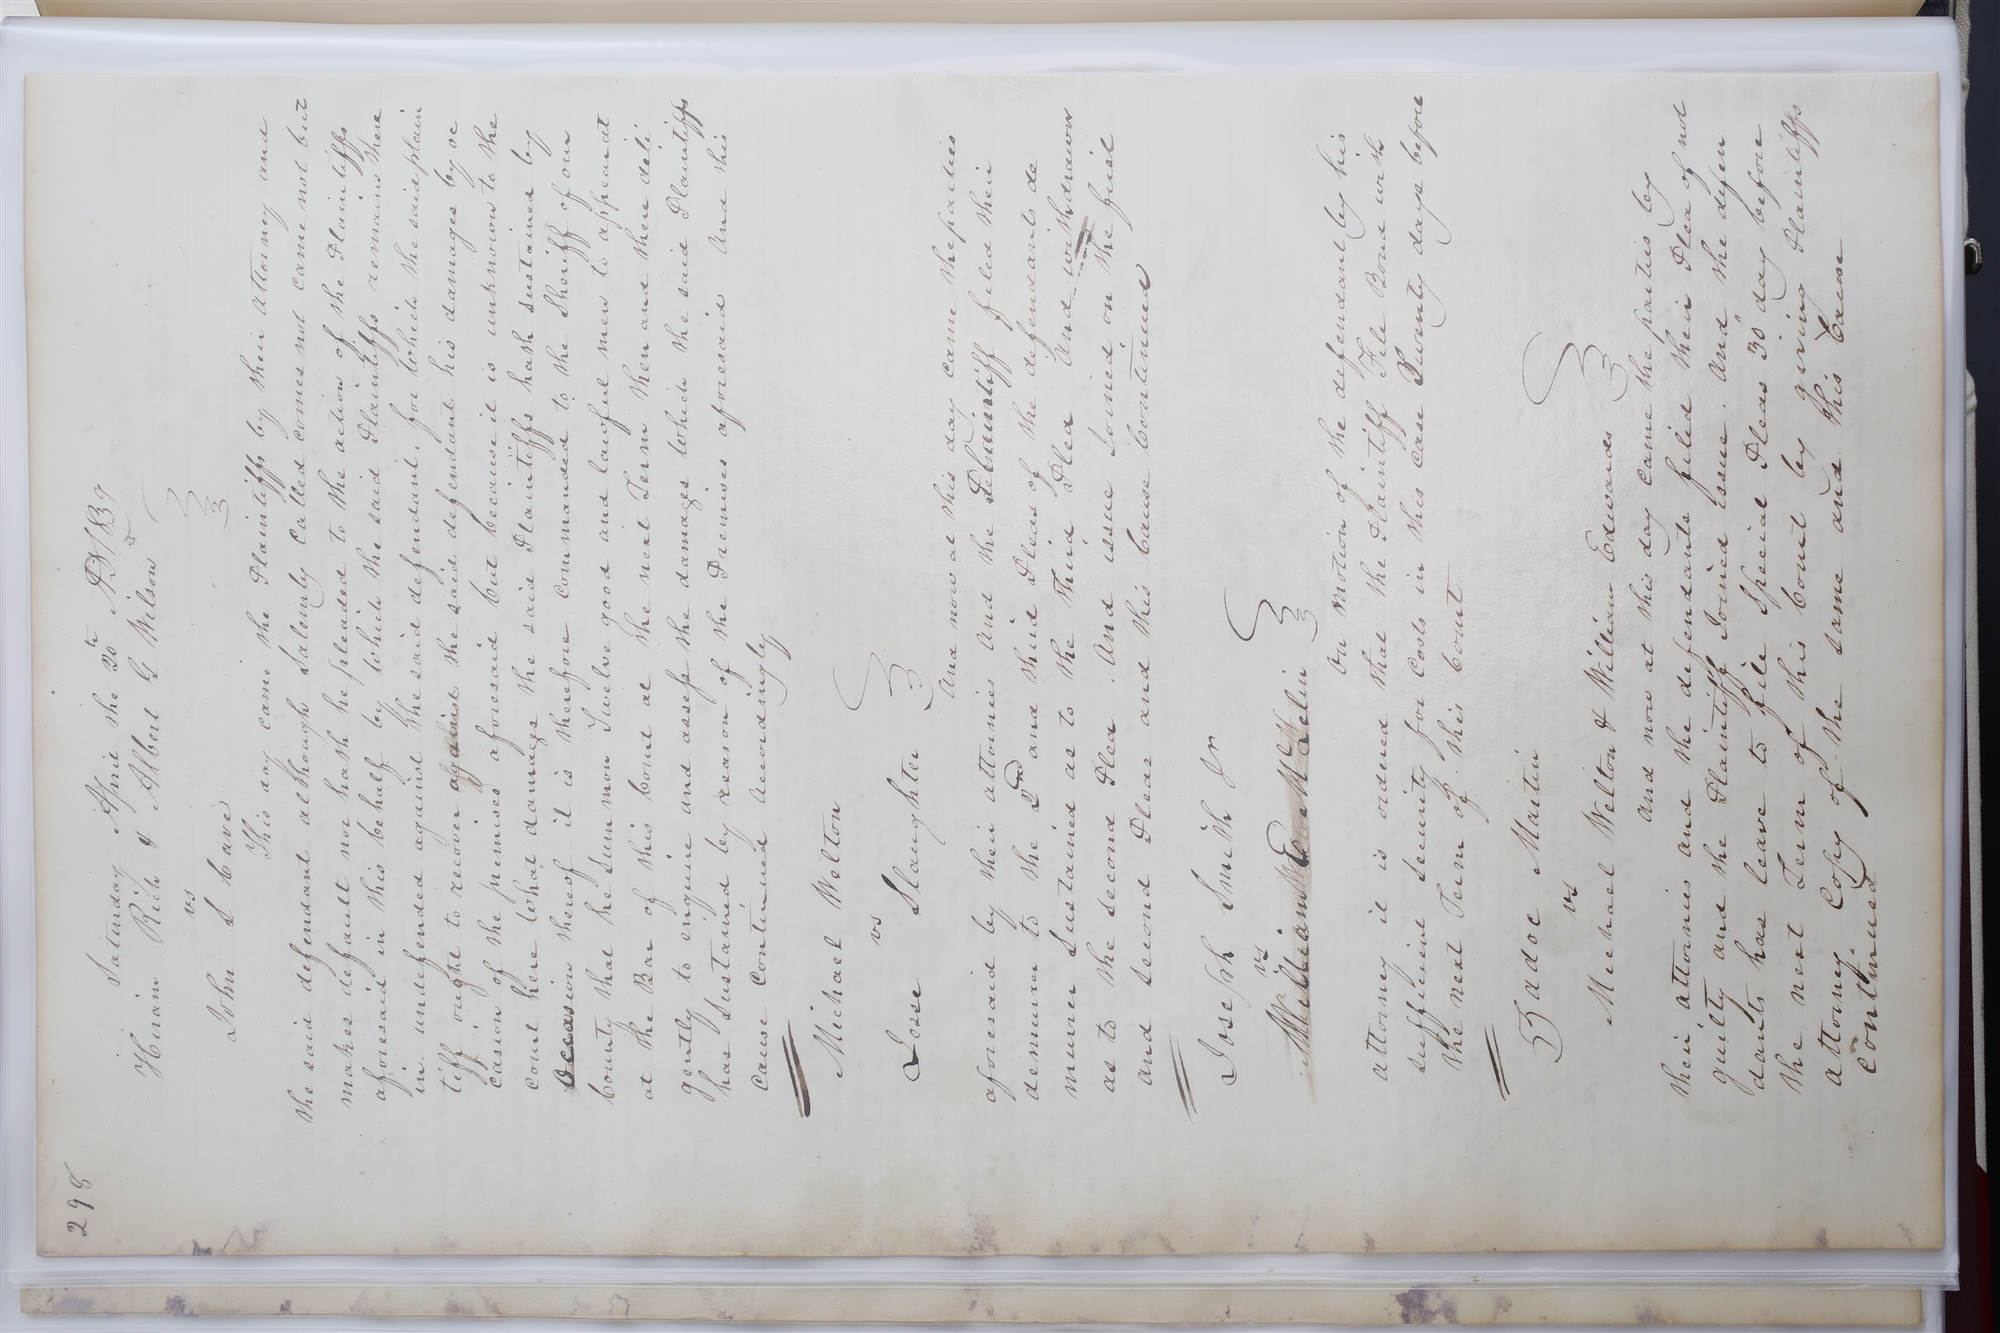 298
Saturday April the 20th AD 1839
Hiram Rich & Albert G Wilson
vs
John S Cave
This day came the Plaintiffs by their atorney and
the said defendant although Solemnly Called comes not came not but
makes default nor hath he pleaded to the action of the Plaintiffs
aforesaid in this behalf by which the said Plaintiffs remains there
in undefended against the said defendant, for which the said plain
tiff ought to recover against the said defendant his damages by oc
casion of the premises aforesaid but because it is unknown to the
court here what damages the said Plaintiffs hath sustained by
Occasion thereof it is therefore commanded to the Sheriff of our
County that he Summon Twelve good and lawful men to appear at
at the Bar of this Court at the next Term then and there deli
gently to enquire and assess the damages which the said Plaintiffs
has Sustained by reason of the Premises aforesaid and this
Cause Continued Accordingly
Michael Welton
vs
Jesse Slaughter
And now at this day came the parties
aforesaid by their attornies And the Plaintiff filed their
demurrer to the 2nd and third Pleas of the defendants de
murrer Sustained as to the third Plea And withdrawn
as to the second Plea. And issue Joined on the first
and second Pleas and this Cause Continued
Joseph Smith Jr
vs
William McLelin
On motion of the defendant by his
attorney it is ordered that the Plaintiff File Bond with
sufficient Security for Costs in this case Twenty days before
the next Term of this Court
Zadoc Martin
vs
Michael Welton & William Edwards
And now at this day came the parties by
their attornies and the defendants filed their Plea of not
guilty and the Plaintiff Joined Issue. And the defen
dants has leave to file Special Pleas 30 day before
the next Term of this Court by giving Plaintiffs
attorney Copy of the same and this Cause
Continued